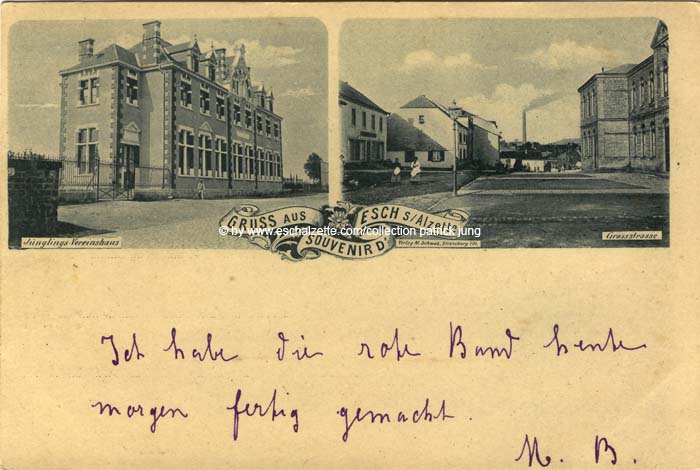 GRUSS AUS ESCH s/Alzette
SOUVENIR D'
© by www.eschalzette.com/collection patrick jung
Jünglings-Vereinshaus
Verlag M. Schwab, Strassburg i/E.
Grossstrasse
Ich habe die rote Band heute
morgen fertig gemacht.
M. B.